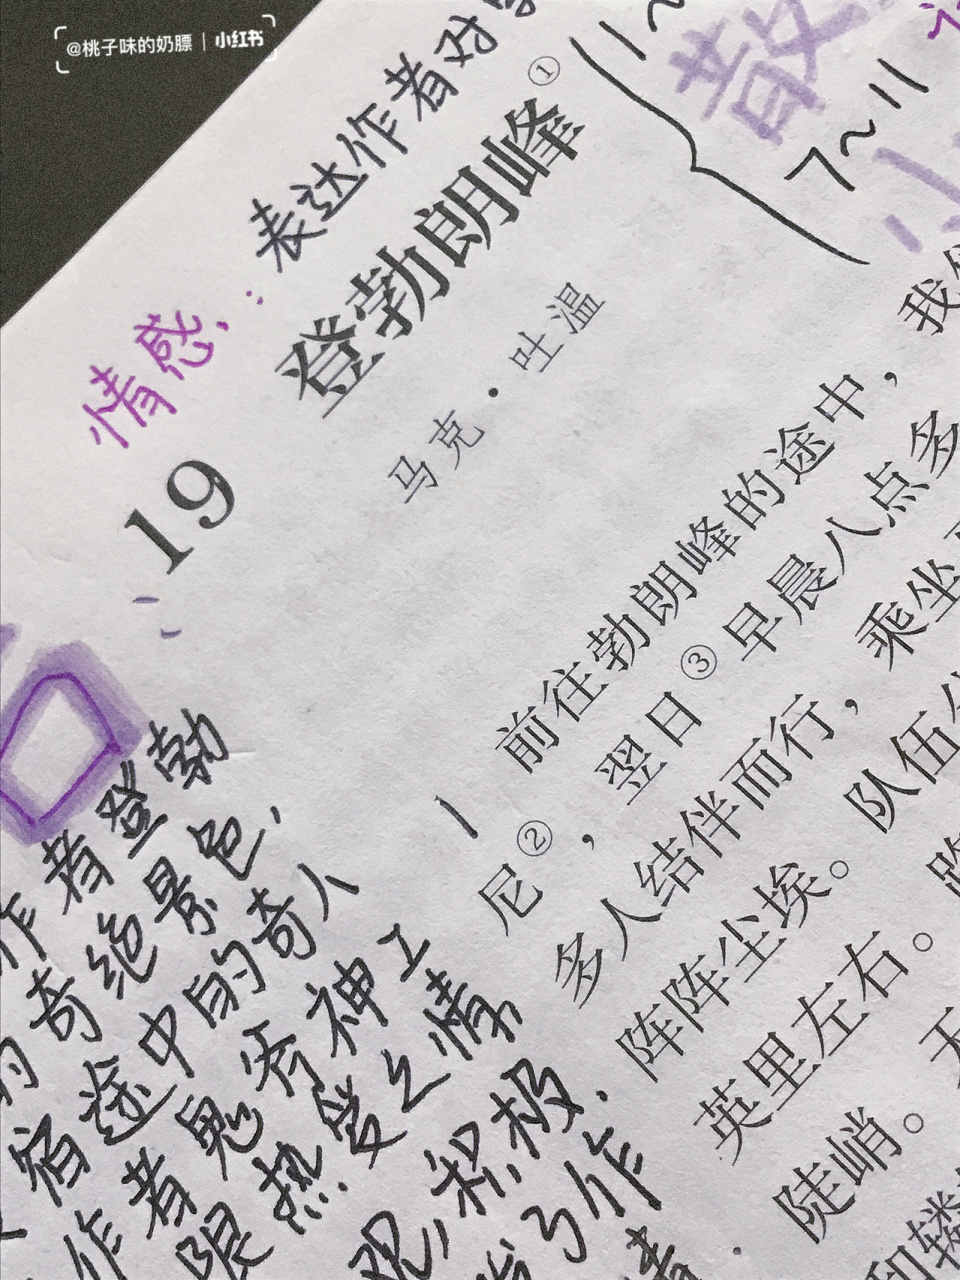 @桃子味的奶膘 | 小红书
表达作者对
情感:
19 登勃朗峰①
马克·吐温
散
7~11
前往勃朗峰的途中，我们
尼②，翌日③早晨八点多
多人结伴而行，乘坐
阵阵尘埃。队伍
英里左右。路
陡峭。
作者登勃
的奇绝景色,
宿途中的奇人
作者鬼斧神工
限热爱之情
观,积极.
了作
情.